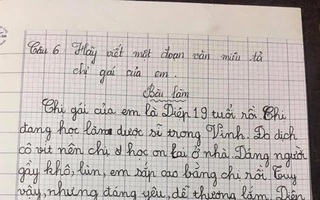 Câu 6 Hãy viết một đoạn văn miêu tả
chị gái của em.
Bài làm
Chị gái của em là Diệp 19 tuổi rồi Chị
đang học làm dược sĩ trong Vinh. Do dịch
cô vít nên chị học on lai ở nhà. Dáng người
gầy khô, lùn, em sắp cao bằng chị rồi. Tuy
vậy, nhưng đáng yêu, dễ thương lắm. Diệp